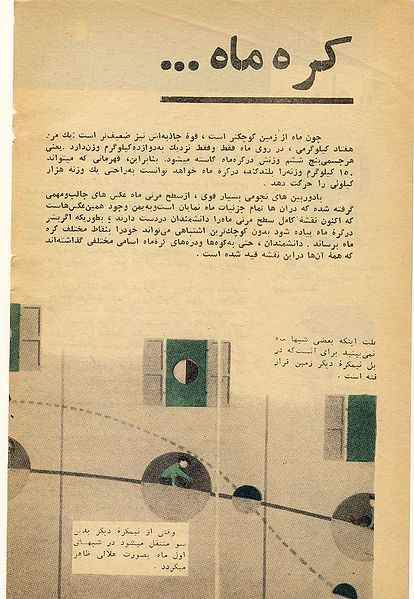 کره ماه ...
چون ماه از زمین کوچکتر است ، قوهٔ جاذبه‌اش نیز ضعیف‌تر است :یك مرد
هفتاد کیلوگرمی ، در روی ماه فقط وفقط نزدیك به‌دوازده‌کیلوگرم وزن‌دارد .یعنی
هرجسمی‌پنج ششم وزنش درکره‌ماه کاسته میشود. بنابراین، قهرمانی که میتواند
۱۵۰ کیلوگرم وزنه‌را بلندکند، درکرهٔ ماه خواهد توانست به‌راحتی یك وزنه هزار
کیلوئی را حرکت دهد .
بادوربین های نجومی بسیار قوی ، ازسطح مرئی ماه عکس های جالب‌ومهمی
گرفته شده که درآن ها تمام جزئیات ماه نمایان است‌وبه‌یمن وجود همین‌عکس‌هاست
که اکنون نقشهٔ کامل سطح مرئی ماه‌را دانشمندان دردست دارند ؛ بطوریکه اگربشر
درکرهٔ ماه پیاده شود بدون کوچك‌ترین اشتباهی می‌تواند خودرا بنقاط مختلف کره
ماه برساند . دانشمندان ، حتی به‌کوه‌ها ودره‌های کرهٔ‌ماه اسامی مختلفی گذاشته‌اند
که همهٔ آن‌ها دراین نقشه قید شده است .
علت اینکه بعضی شبها ماه
نمی‌بینید برای آنست‌که در
نیمکرهٔ دیگر زمین قرار
است .
وقتی از نیمکرهٔ دیگر بدین
سو منتقل میشود در شبهـای
اول ماه بصورت هلالی ظاهر
میگردد .